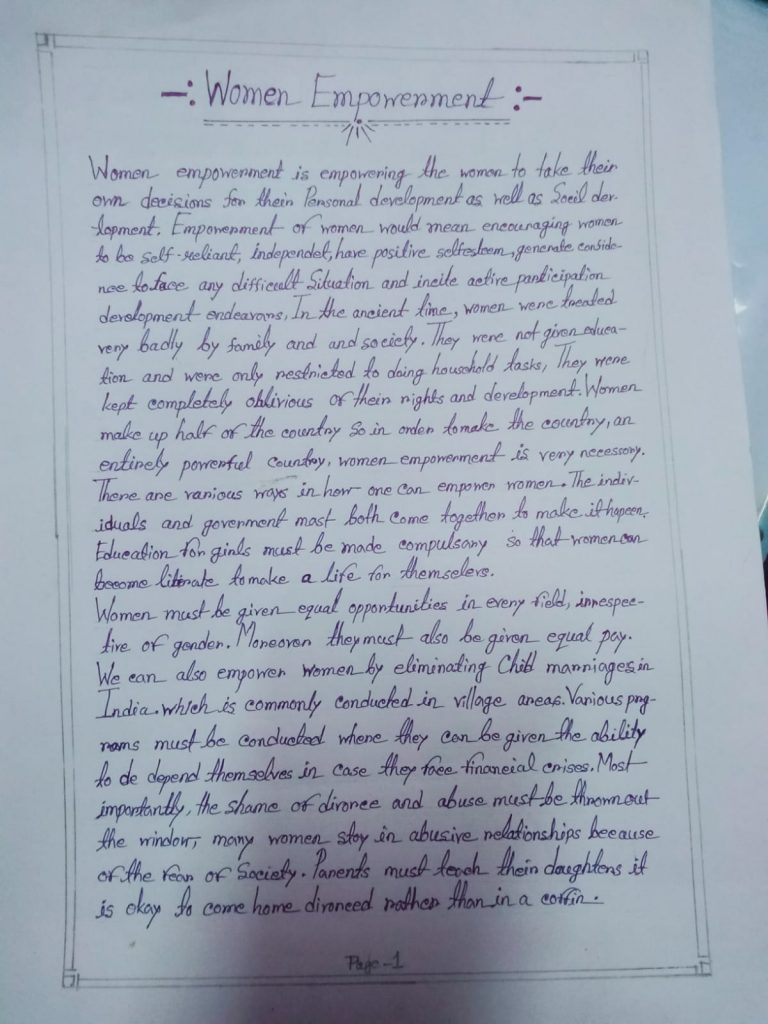 -: Women Empowerment :-
Women empowerment is empowering the women to take their
own decisions for their Personal development as well as Socil dev-
lopment. Empowerment of women would mean encouraging women
to be self-reliant, independet, have positive selfesteem, generate confide-
nce to face any difficult Situation and incite active participation
development endeavors, In the ancient time, women were treated
very badly by family and and society. They were not given educa-
tion and were only restricted to doing household tasks, They were
kept completely oblivious of their rights and development. Women
make up half of the country So in order to make the country, an
entirely powerful country, women empowerment is very necessory.
There are various ways in how one can empower women. The indiv-
iduals and goverment most both come together to make it hapeen,
Education for girls must be made compulsary so that women can
become literate to make a life for themselves.
Women must be given equal opportunities in every field, irrespec-
tive of gender. Moreover they must also be given equal pay.
We can also empower women by eliminating Child marriages in
India. which is commonly conducted in village areas. Various prog-
rams must be conducted where they can be given the ability
to de depend themselves in case they face financeial crises. Most
importantly, the shame of divorce and abuse must be thrown out
the window, many women stay in abusive relationships because
of the fear of Society. Parents must teach their daughters it
is okay to come home divorced rather than in a coffin.
Page-1